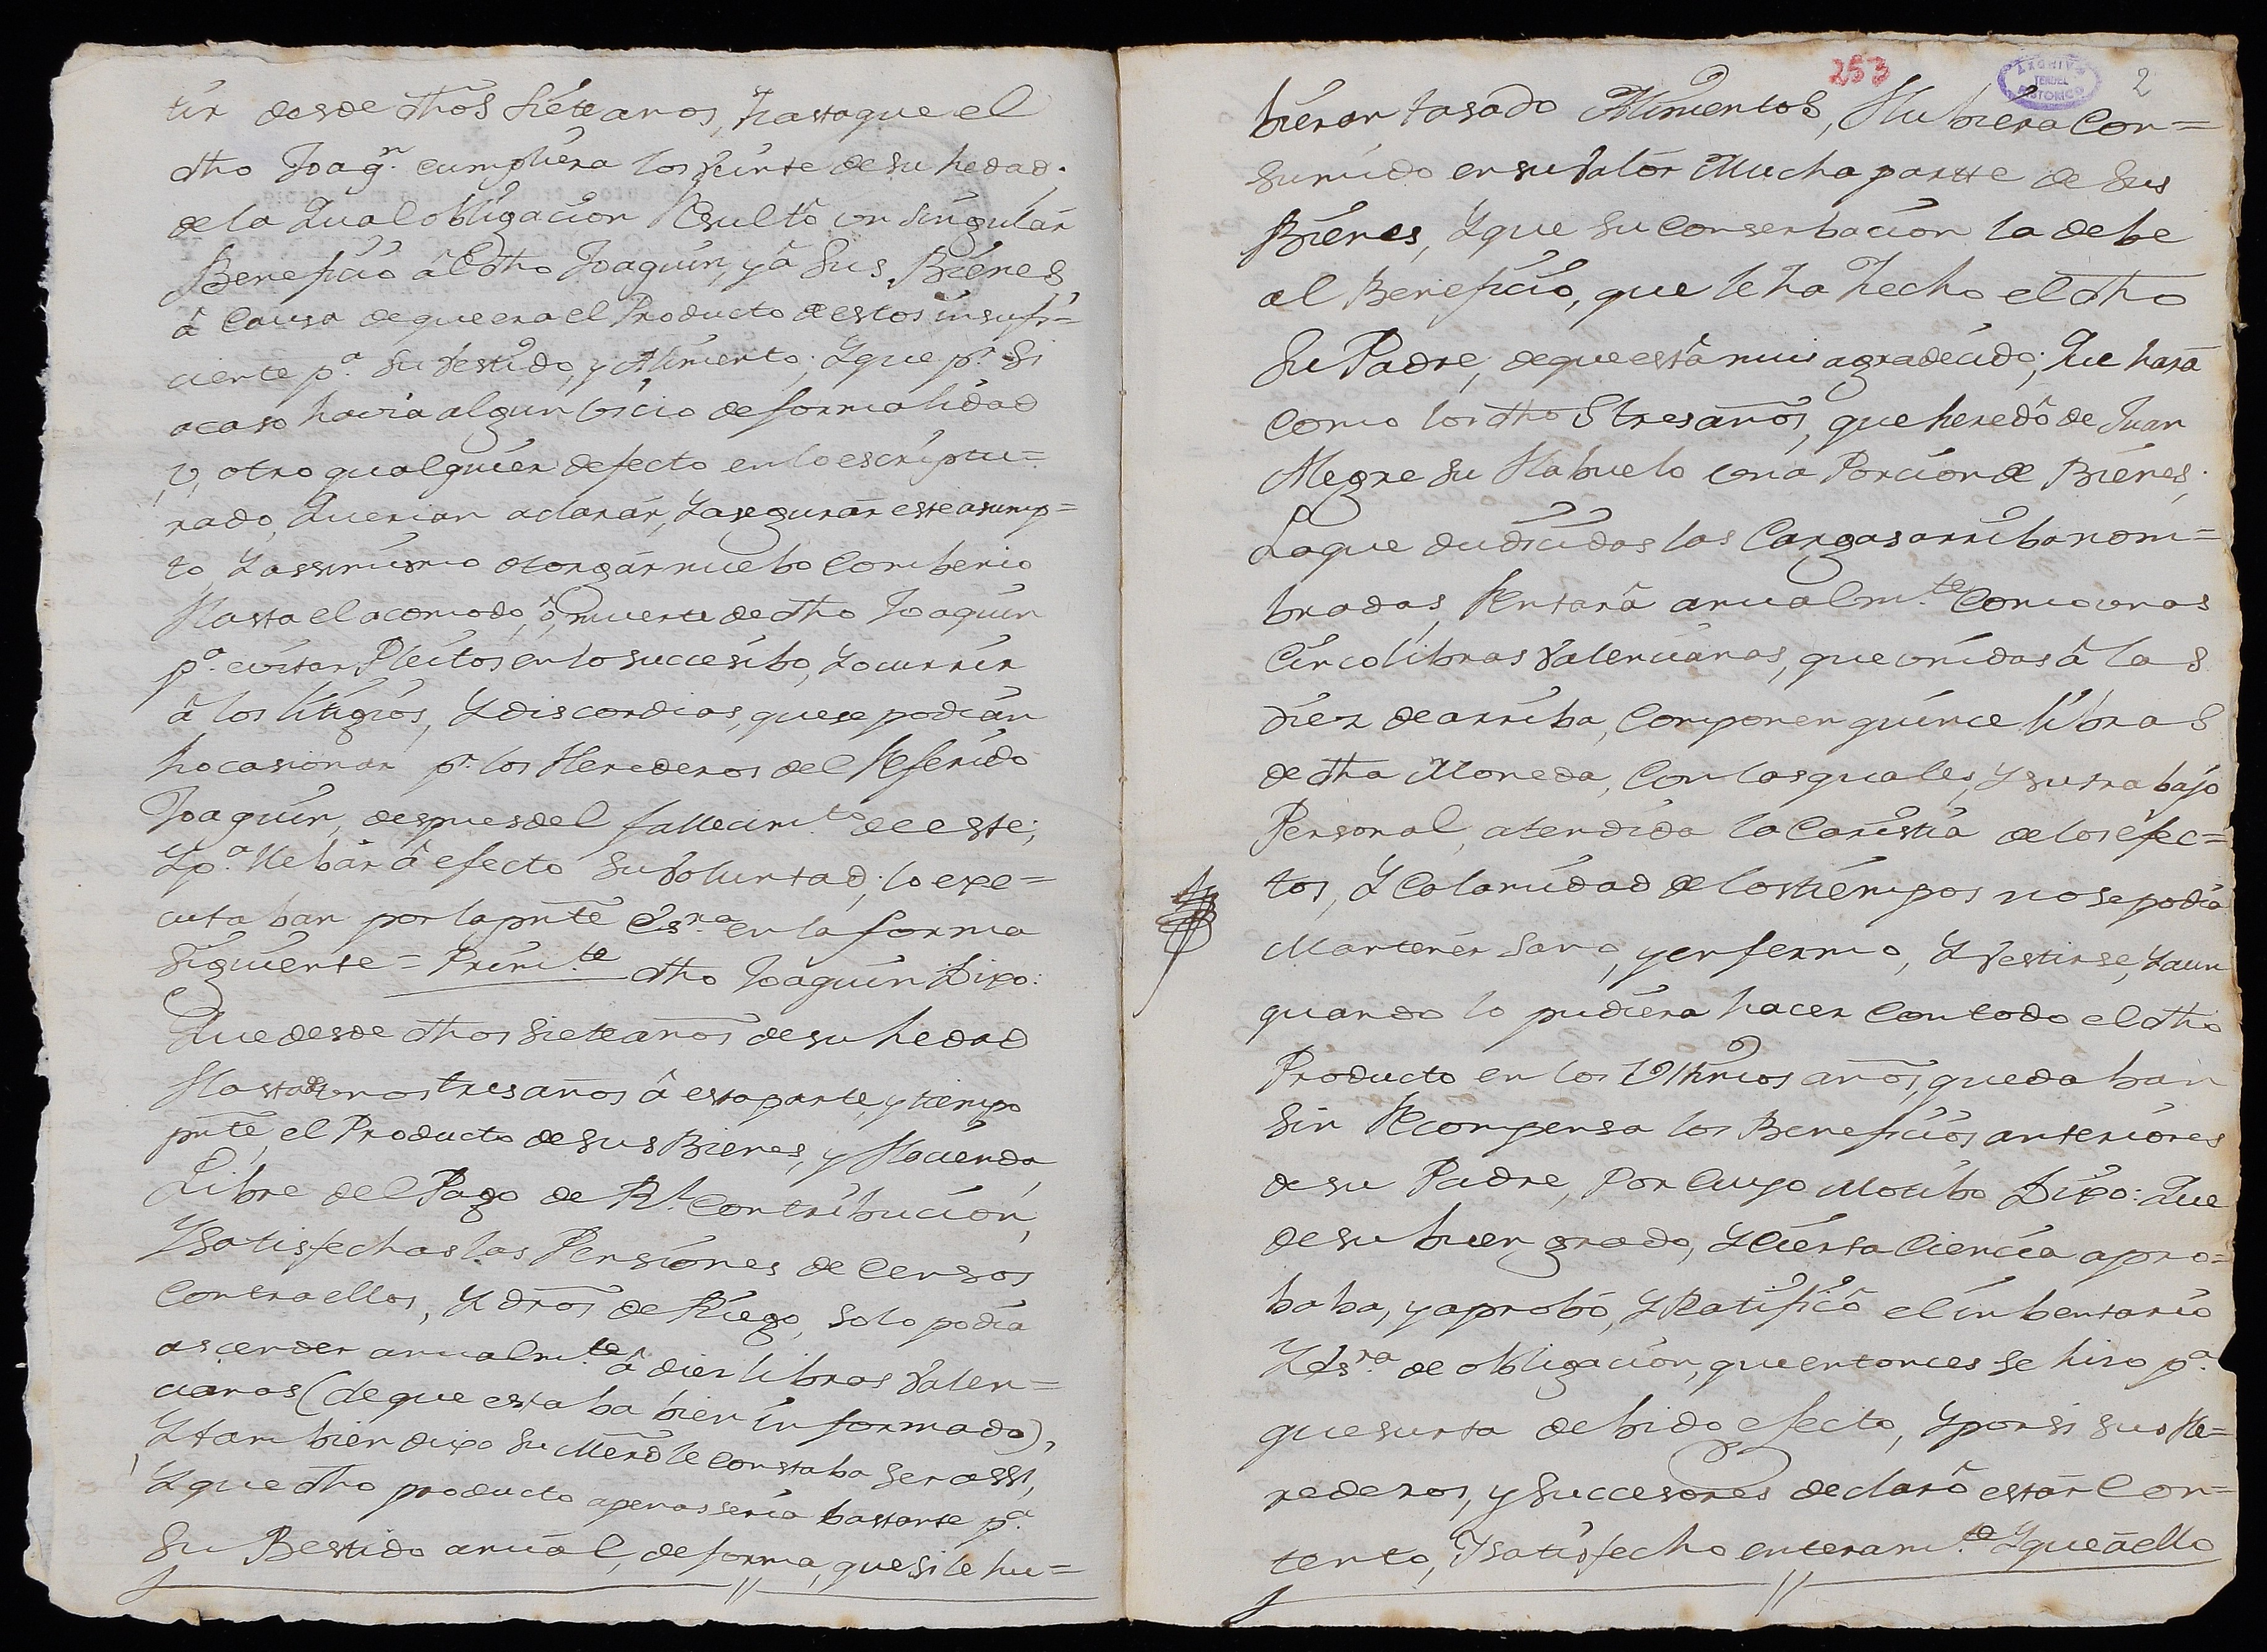 tir desde dhõs siete anos, hasta que el
dho Joaqn. cumpliera los veinte de su hedad.
de la Qual obligacion Resultô un singular
Beneficio â el dho Joaquin, y â sus Bienes
â causa de que era el Producto de estos insufi=
ciente pa. su vestido, y Alimento; Y que pr. si
acaso havia algun vicio de formalidad
v, otro qualquier defecto en lo escriptu=
rado, Querian aclarar, Y asegurar este asump=
to, Y assimismo otorgar nuebo Combenio
Hasta el acomodo, ô, muerte de dho Joaquin
pa. evitar Pleitos en lo succesibo, Y ocurrir
â los litigios, Y discordias, que se podian
hocasionar pr. los Herederos del Referido
Joaquin, despues del fallecimto. de este;
Y pa. llebar â efecto su voluntad; lo exe=
cutaban por la pnte Esra. en la forma
siguiente = Primte. dho Joaquin Dixo:
Que desde dhos siete anõs de su hedad
Hasta de unos tres anõs â esta parte, y tiempo
pnte, el Producto de sus Bienes, y Hacienda,
Libre del Pago de Rl. Contribucion,
Y satisfechas las Pensiones de Censos
Contra ellos, Y drõs de Riego, solo podia
ascender anualmte. â diez libras Valen=
cianas (de que estaba bien informado),
Y tambien dixo su Merd le constaba ser assi,
Y que dho producto apenas seria bastante pa.
su Bestido anual, de forma, que si le hu=
253
ARCHIVO
TERUEL
HISTORICO
2
bieran tasado Alimentos, Hubiera Con=
sumido en su valor Mucha partte de sus
Bienes, Y que su conserbacion la debe
al Beneficio, que le ha hecho el dho
su Padre, de que estâ mui agradecido; Que harâ
como los dhos tres anõs, que heredô de Juan
Alegre su Habuelo una Porcion de Bienes;
La que dudicidas las Cargas arriba nom=
bradas, Rentarâ anualmte. Como unas
Cinco libras Valencianas, que unidas â las
diez de arriba, Componen quince libras
de dha Moneda, Con las quales, y su trabajo
Personal, atendida la Carestia de los efec=
tos, Y Calamidad de los tiempos no se podia
Mantener sano, y enfermo, Y vestirse, Y aun
quando lo pudiera hacer Con todo el dho
Producto en los Ultimos anõs, quedaban
sin Recompensa los Beneficios anteriores
de su Padre, Por Cuyo Motibo Dixo: Que
de su buen grado, Y Cierta Ciencia apro=
baba, y aprobó, Y Ratificô el inbentario
Y Esra. de obligacion, que entonces se hizo pa.
que surta debido efecto, Y por si sus He=
rederos, y Successores declarô estar Con=
tento, Y satisfecho enteramte. Y que â ello